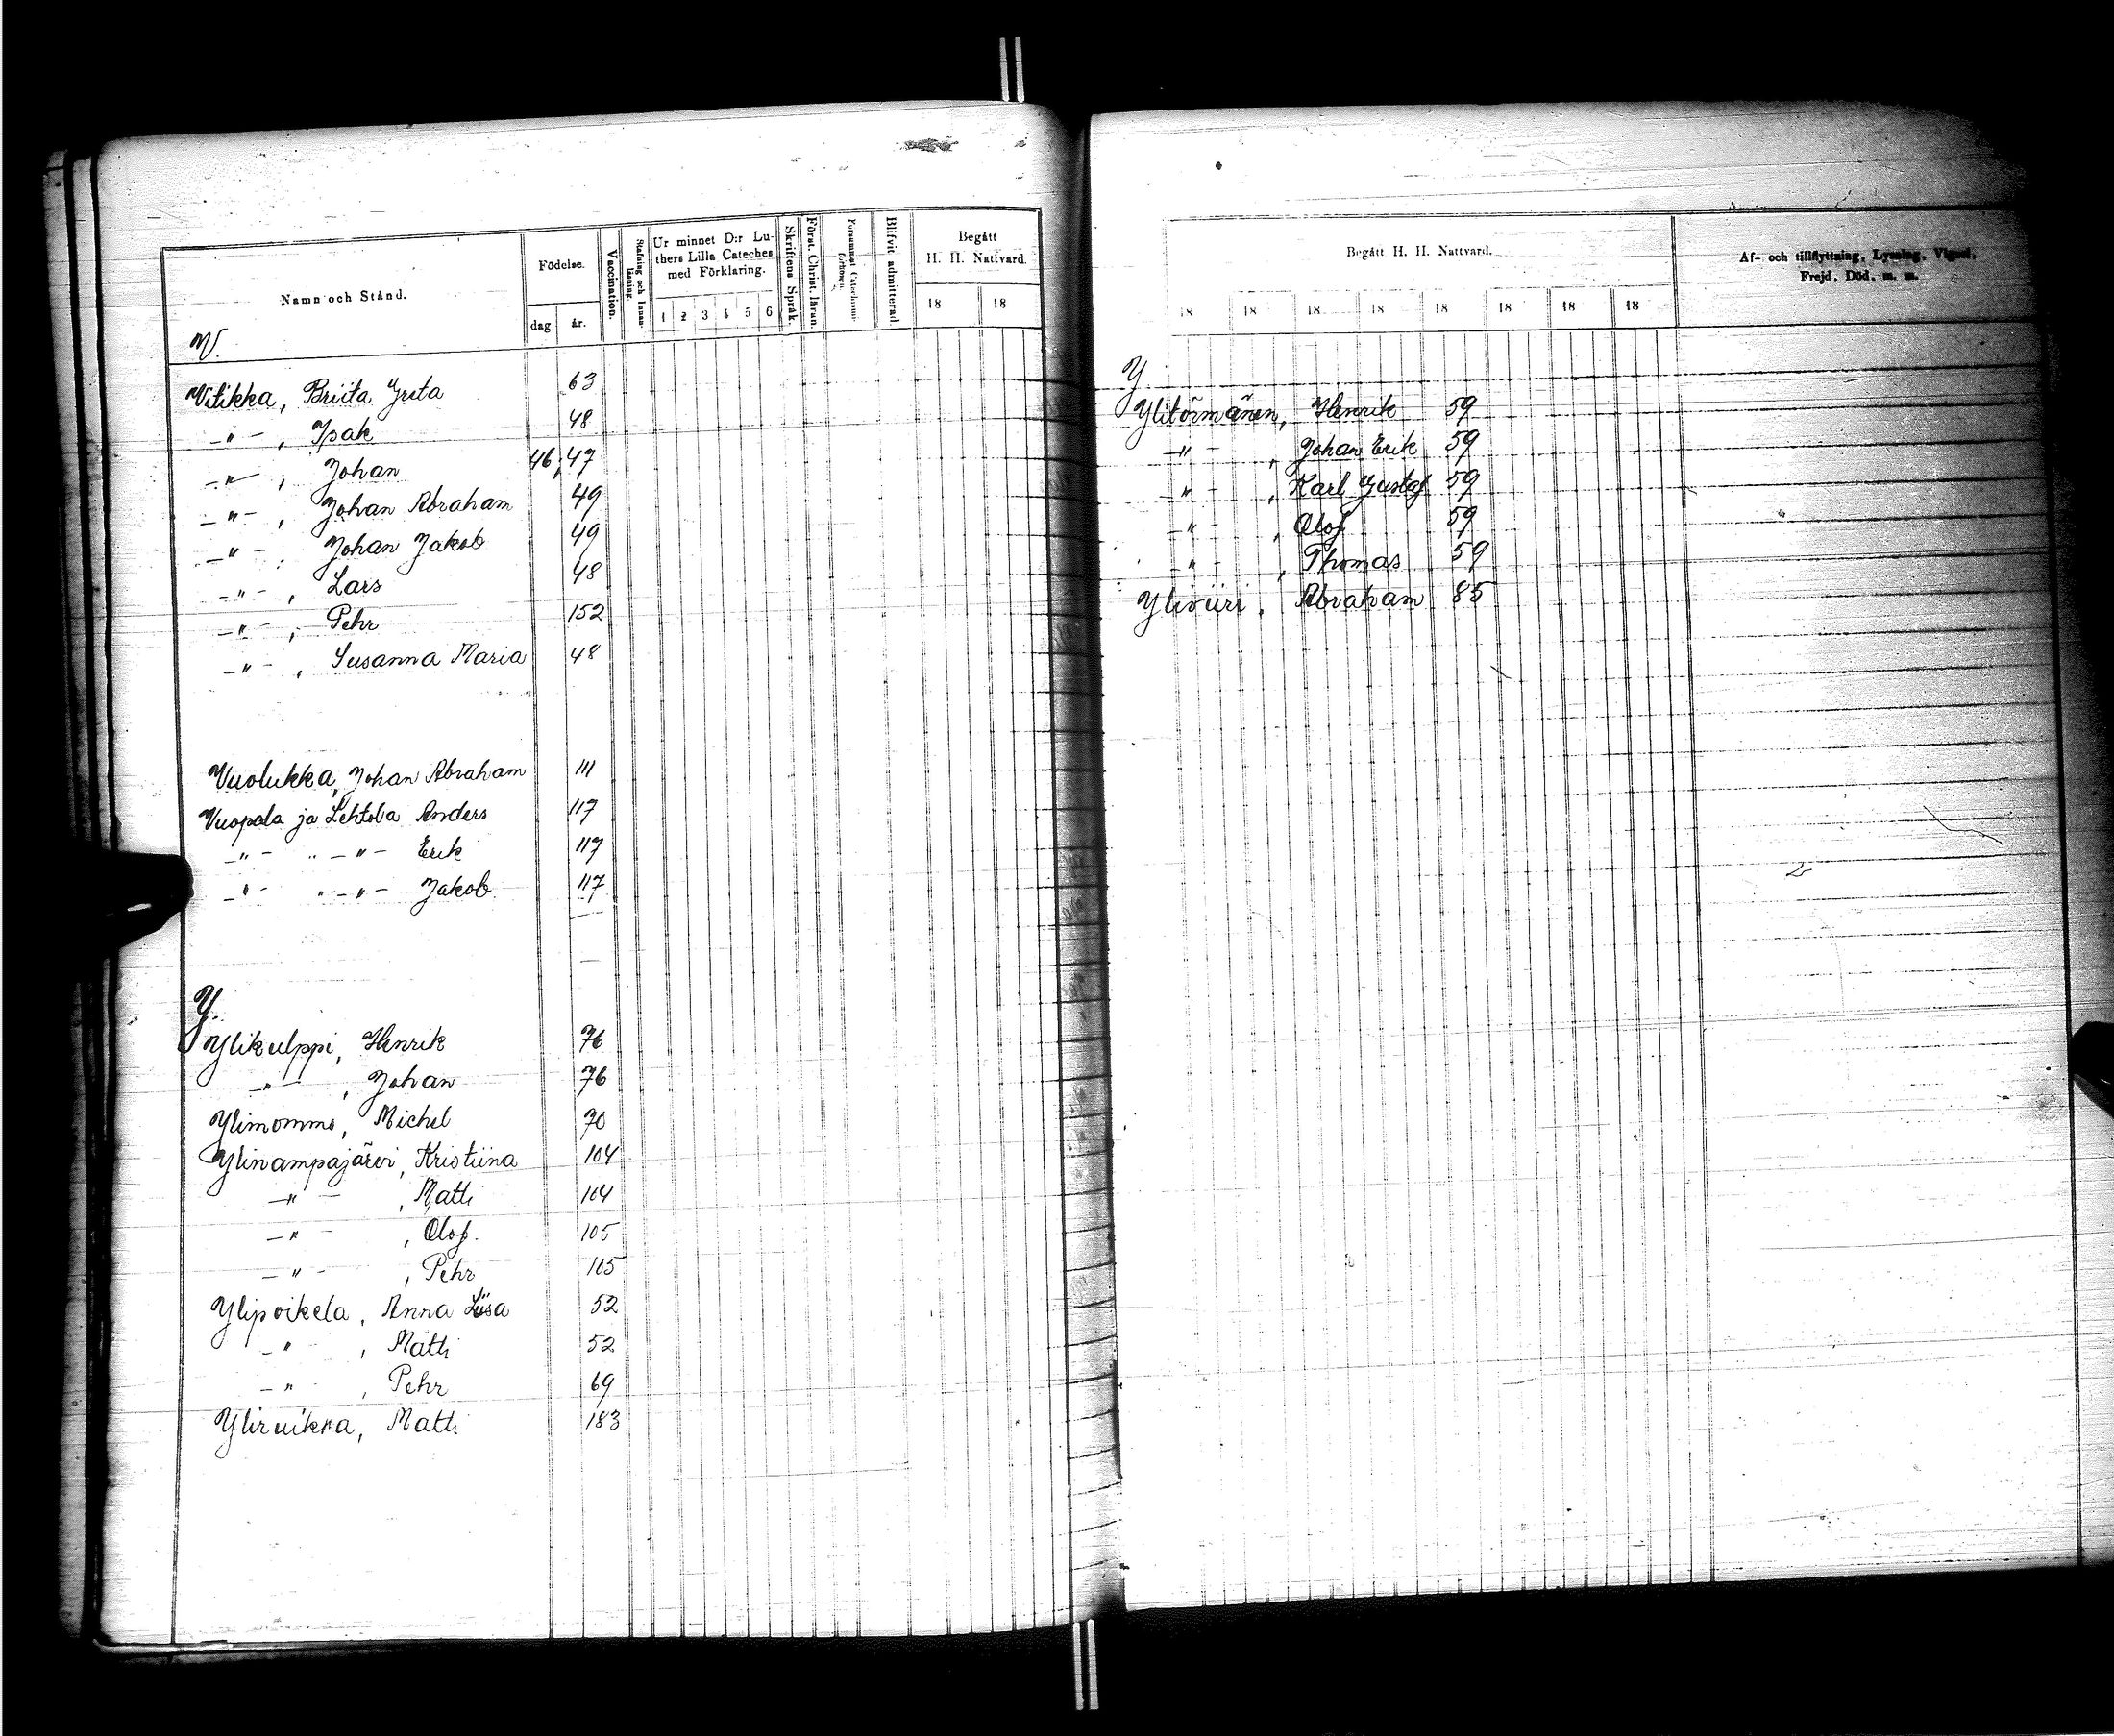 Namn och Stånd.
Födelse.
dag.
år.
Vaccination.
Stafning och Innanläsning.
Ur minnet D:r Luthers Lilla Cateches med Förklaring.
1 2 3 4 5 6
Skriftens Språk.
Först. Christ. läran.
Blifvit admitterad.
Begått
H. H. Nattvard.
18 18
V.
Vitikka, Briita Greta 63
-"- , Isak 48
-"- , Johan 46, 47
-"- , Johan Abraham 49
-"- , Johan Jakob 49
-"- , Lars 48
-"- , Pehr 152
-"- , Susanna Maria 48
Vuolukka, Johan Abraham 111
Vuopala ja Lehtola Anders 117
-"- " -"- Erik 117
-"- " -"- Jakob 117
Y.
Ylikulppi, Henrik 76
-"- , Johan 76
Ylimommo, Michel 70
Ylinampajärvi, Kristiina 104
-"- , Matti 104
-"- , Olof. 105
-"- , Pehr 105
Ylipoikela, Anna Liisa 52
-"- , Matti 52
-"- , Pehr 69
Matti 183
Begått H. H. Nattvard.
18 18 18 18 18 18 18 18
Af- och tillflyttning, Lysning, Vigsel,
Frejd, Död, m. m.
Y
Ylitörmänen, Henrik 59
-"- , Johan Erik 59
-"- , Karl Gustaf 59
-"- , Olof 59
-"- , Thomas 59
Yliviiri, Abraham 85